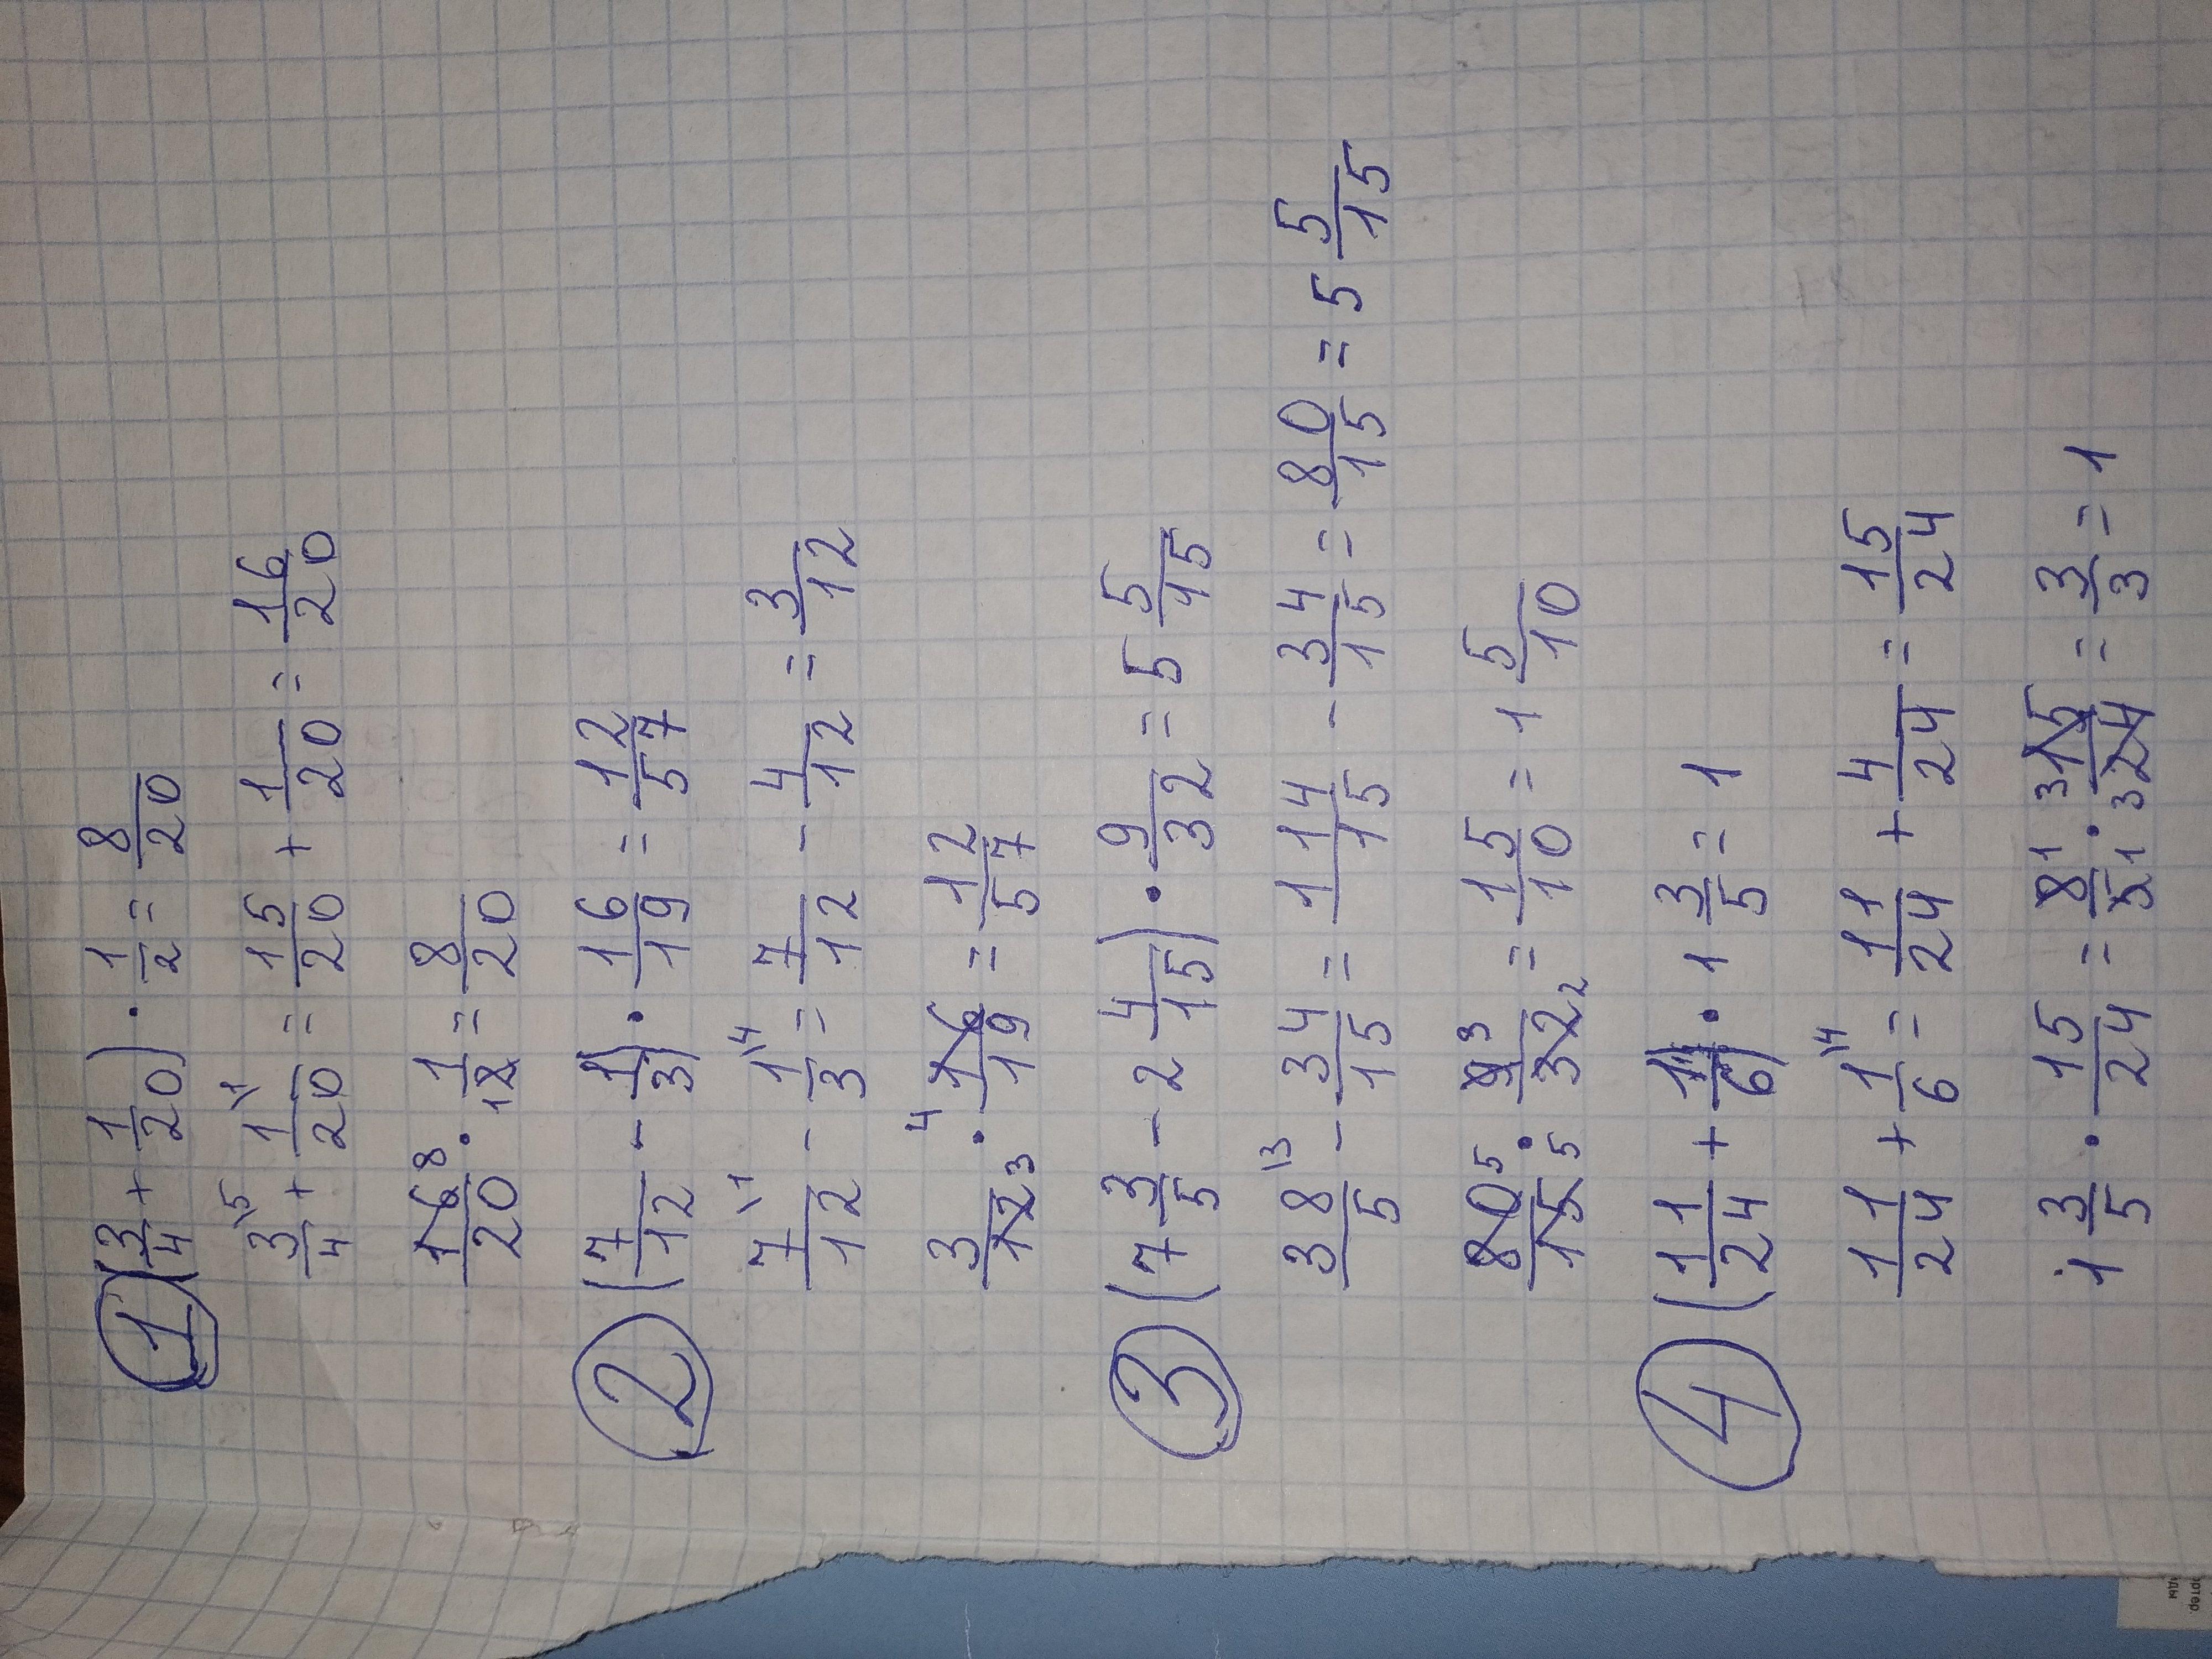 ① (3/4 + 1/20) · 1/2 = 8/20
3/4 \5 + 1/20 \1 = 15/20 + 1/20 = 16/20
16/20 8 · 1/2 1 = 8/20
② (7/12 - 1/3) · 16/19 = 12/57
7/12 \1 - 1/3 \4 = 7/12 - 4/12 = 3/12
3/12 3 · 4 16/19 = 12/57
③ (7 3/5 - 2 4/15) · 9/32 = 5 5/15
38/5 \3 - 34/15 = 114/15 - 34/15 = 80/15 = 5 5/15
80/15 5 5 · 9/32 3 2 = 15/10 = 1 5/10
④ (11/24 + 1/6) · 1 3/5 = 1
11/24 + 1/6 \4 = 11/24 + 4/24 = 15/24
1 3/5 · 15/24 = 8/5 1 1 · 3 3 15/24 = 3/3 = 1